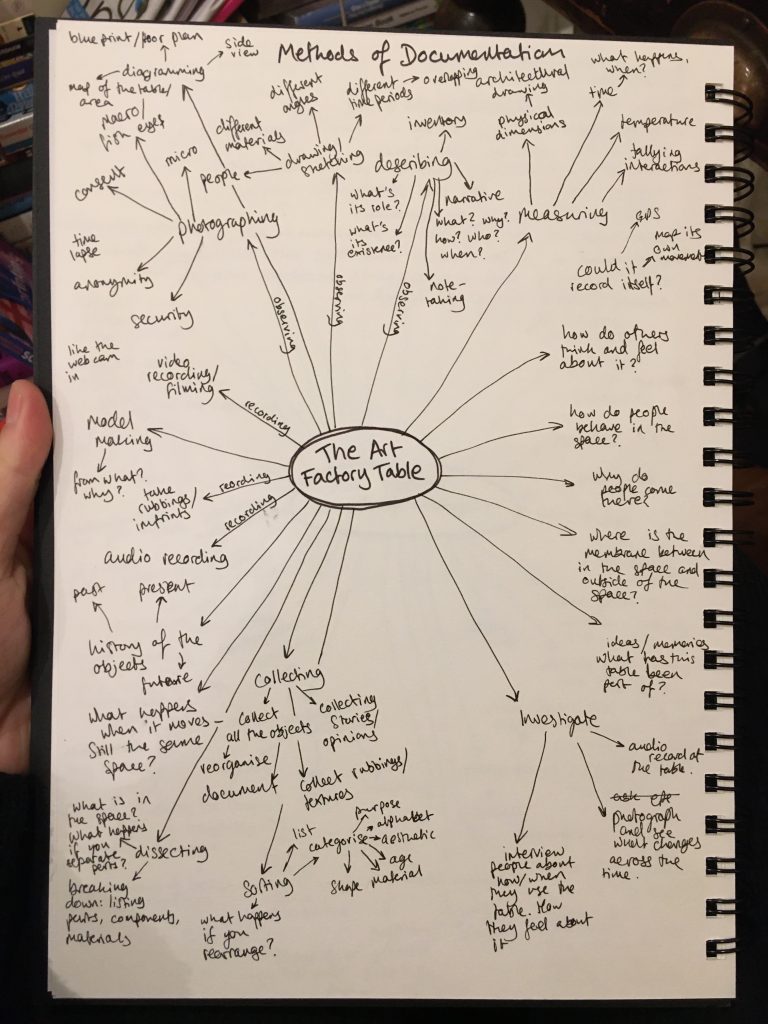 Methods of Documentation
blueprint/floor plan
side
view
diagramming
map of the table/
area
macro/
fish eyes
micro
consent
people
photographing
time
lapse
anonymity
security
different
angles
different
materials
drawing/
sketching
different
time periods
overlapping
inventory
describing
what's
its role?
what's
its
existence?
narrative
what? why?
how? who?
when?
note-
taking
architectural
drawing
physical
dimensions
what happens,
when?
time
temperature
tallying
interactions
measuring
GPS
map its
own
movement
could it
record itself?
observing
observing
observing
like the
webcam
in
video
recording/
filming
recording
model
making
from what?
why?
take
rubbings/
imprints
reording
recording
audio recording
The Art
Factory Table
how do others
think and feel
about it?
how do people
behave in the
space?
why do
people come
there?
where is the
membrane between
in the space and
outside of the
space?
ideas/memories
what has this
table been
part of?
past
present
history of the
objects
future
what happens
when it moves -
still the same
space?
collecting
collect
all the objects
reorganise
document
collecting
stories/
opinions
collect rubbings/
textures
what is in
the space?
what happens
if you
separate
parts?
dissecting
breaking
down: listing
parts, components,
materials
sorting
list
categorise
purpose
alphabet
aesthetic
age
material
shape
what happens
if you
rearrange?
Investigate
audio
record at
the table.
photograph
and see
what changes
across the
time.
interview
people about
how/when
they use the
table. How
they feel about
it